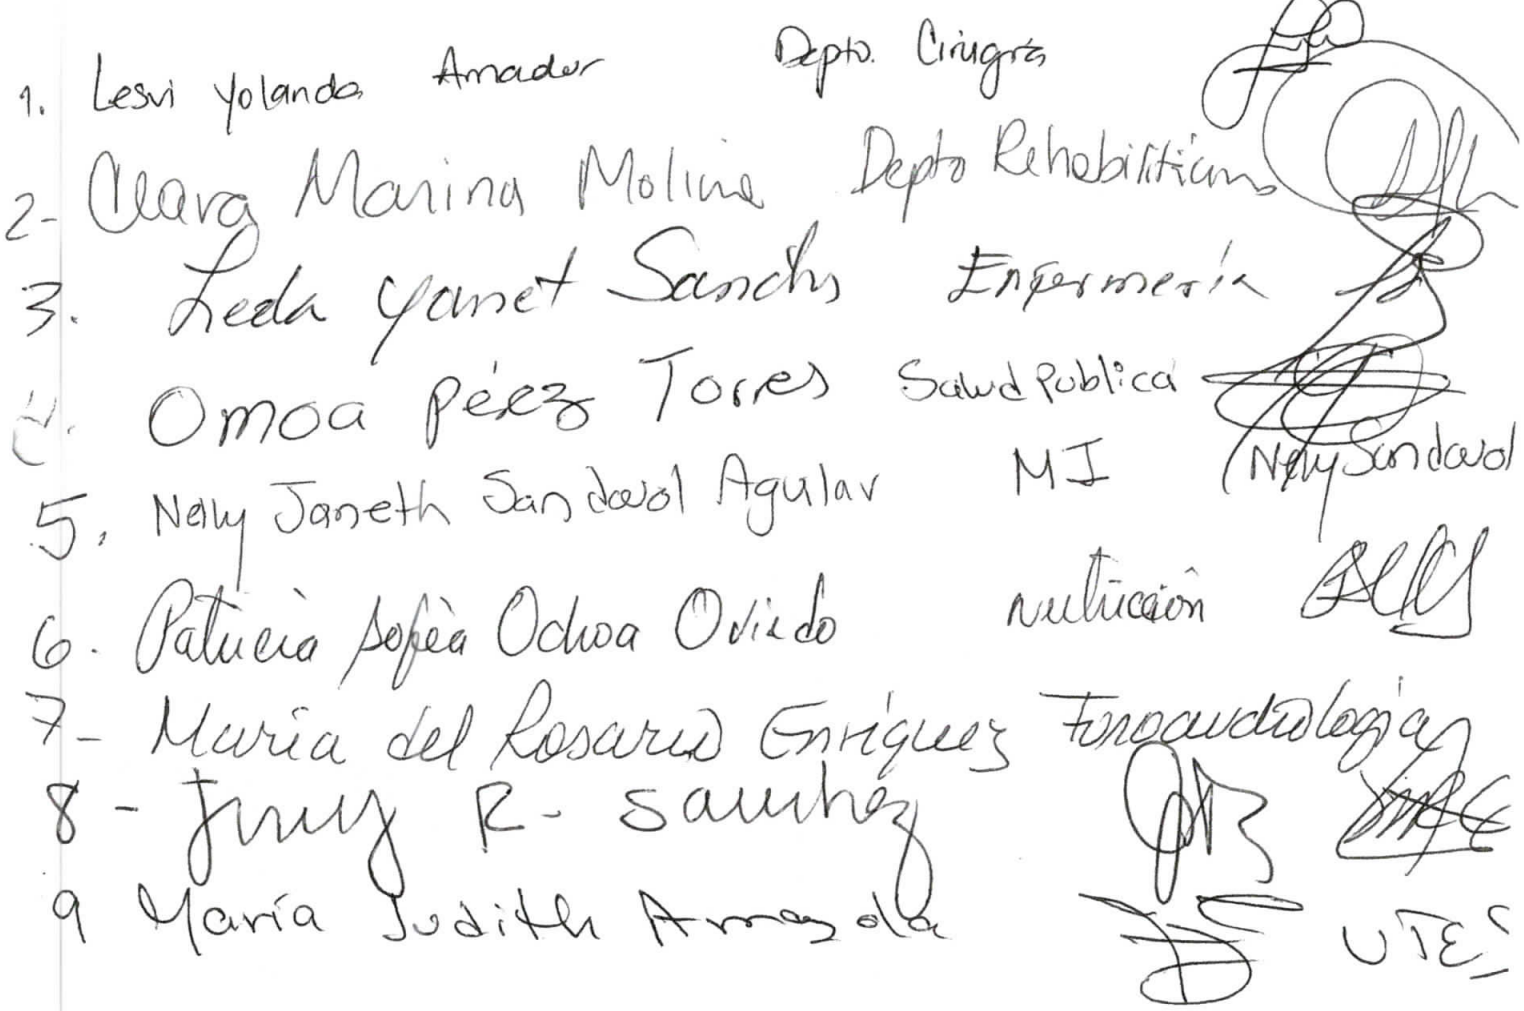 1. Lesvi Yolanda Amador Depto. Cirugía
2- Clara Marina Molina Depto Rehabilitación
3. Leda Yanet Sanchs Enfermería
4. Omoa Pérez Torres Salud Publica
5. Nelly Janeth Sandoval Agular MI Nelly Sandoval
6. Patricia Sofia Ochoa Oviedo Nutrición
7- María del Rosario Enríquez Fonoaudiología
8- R. Sanchez
9 María Judith UTES